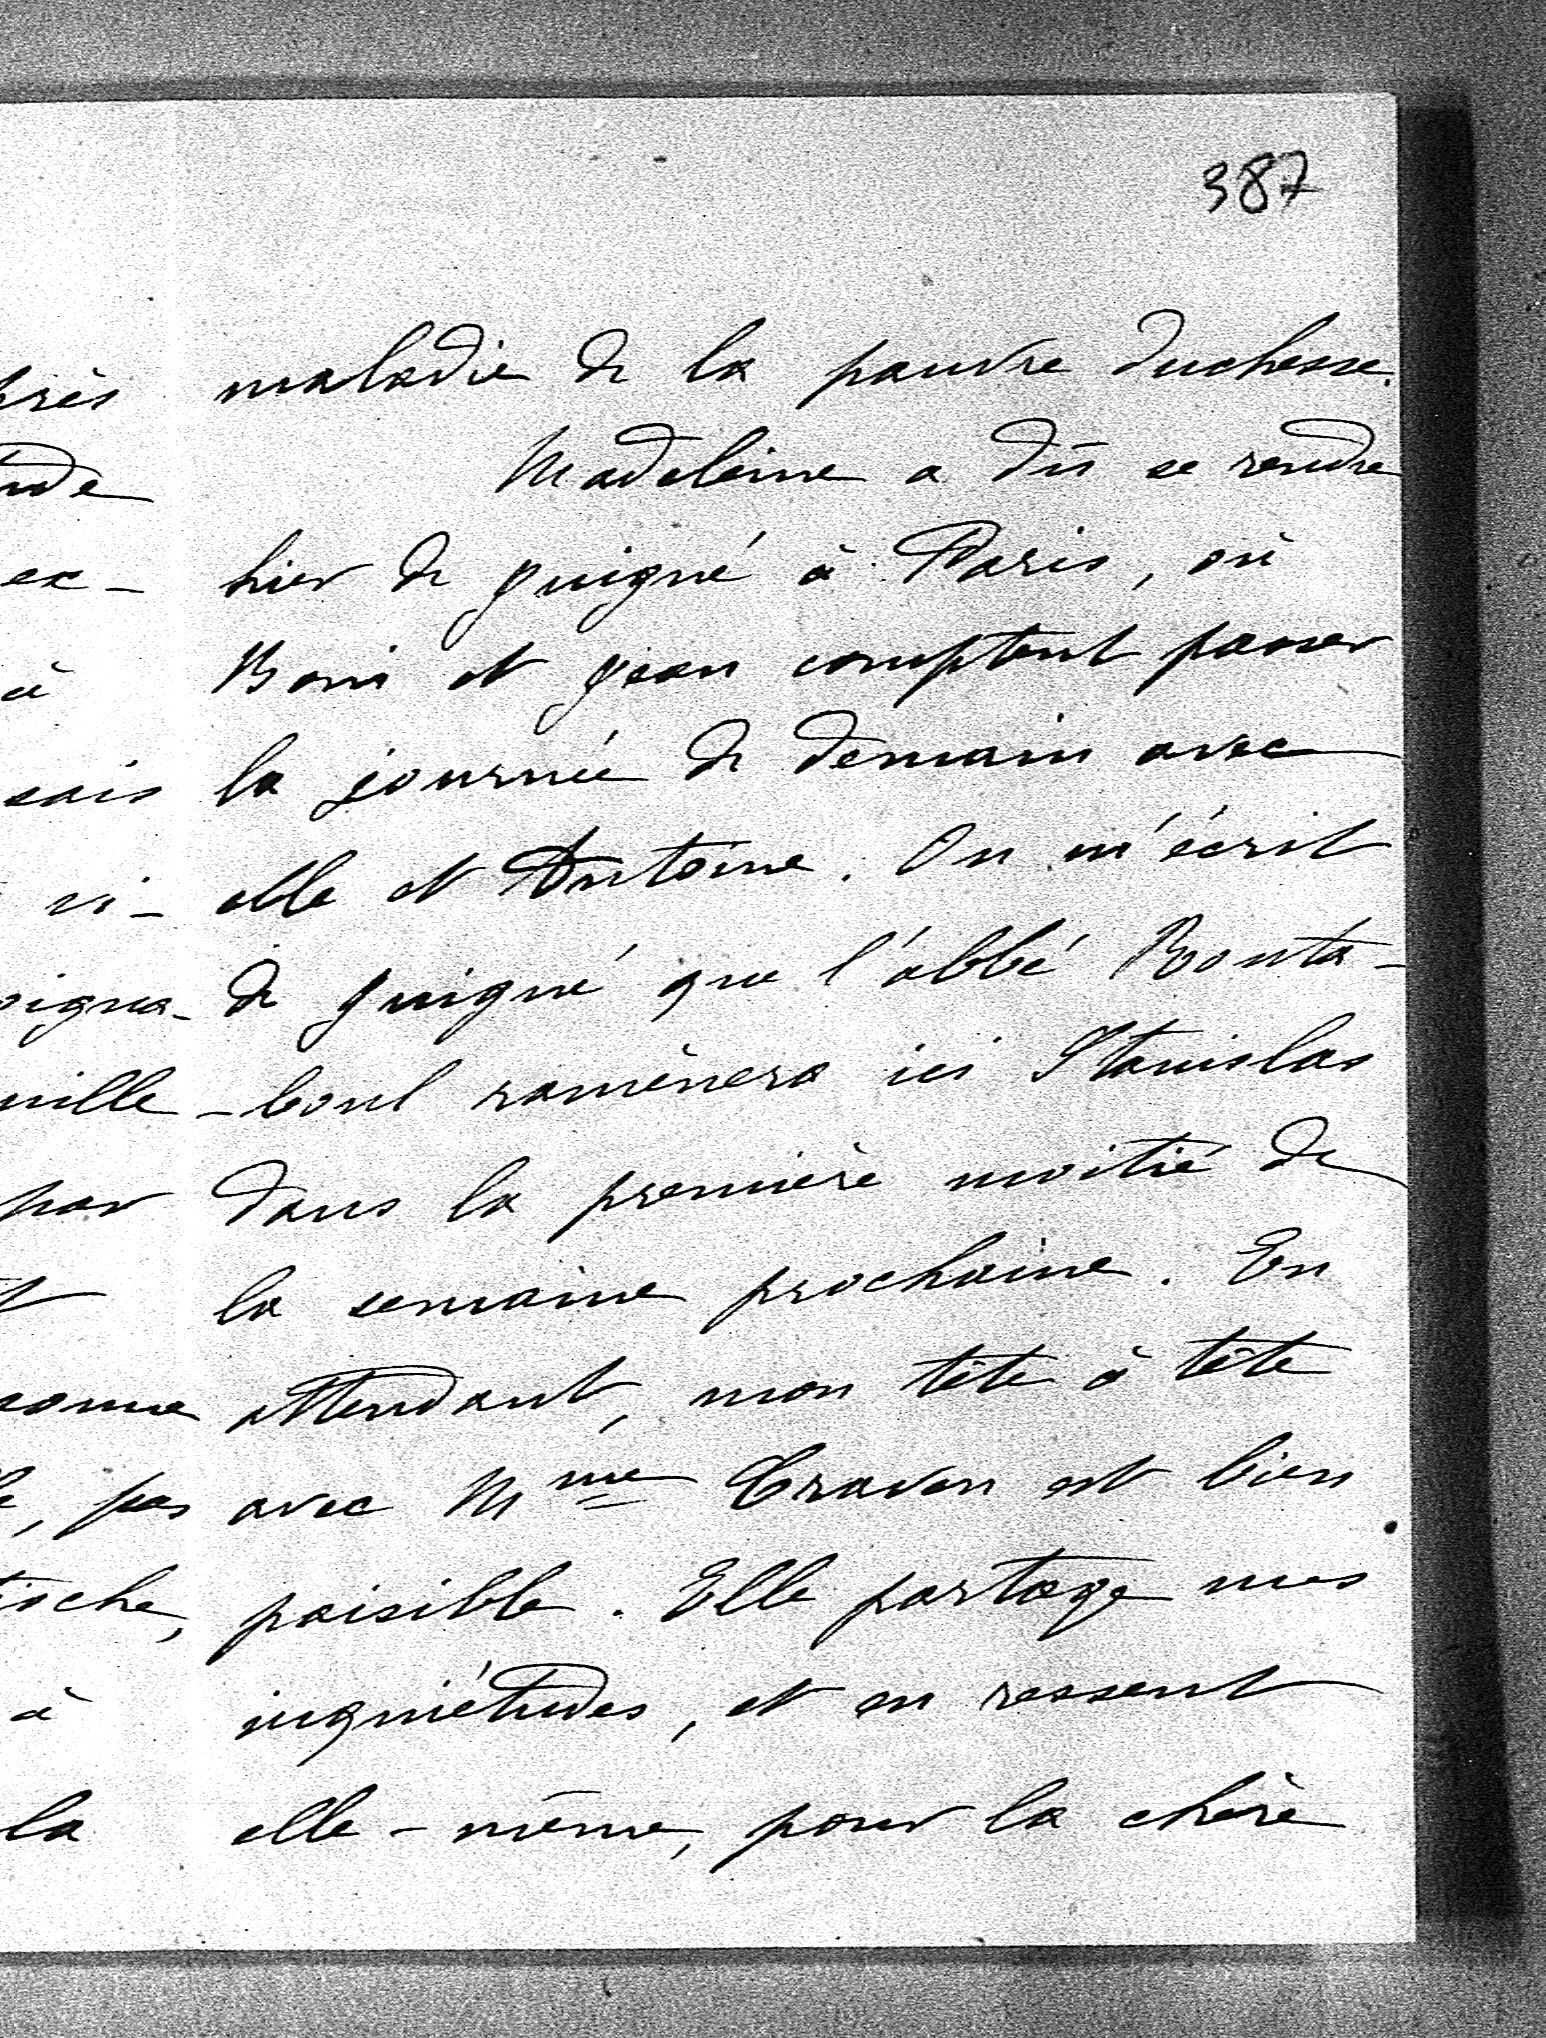 387
maladie de la pauvre duchesse.
Madeleine a dû se rendre
hier de Juigné à Paris, où
Boni et Jean comptent passer
la journée de demain avec
elle et Antoine. On m'écrit
de Juigné que l'abbé Bonta-
-boul ramènera ici Stanislas
dans la première moitié de
la semaine prochaine. En
attendant, mon tête à tête
avec Mme Craven est bien
paisible. Elle partage mes
inquiétudes, et en ressent
elle-même, pour la chère
ex-
à
sais
par
, pas
à
la